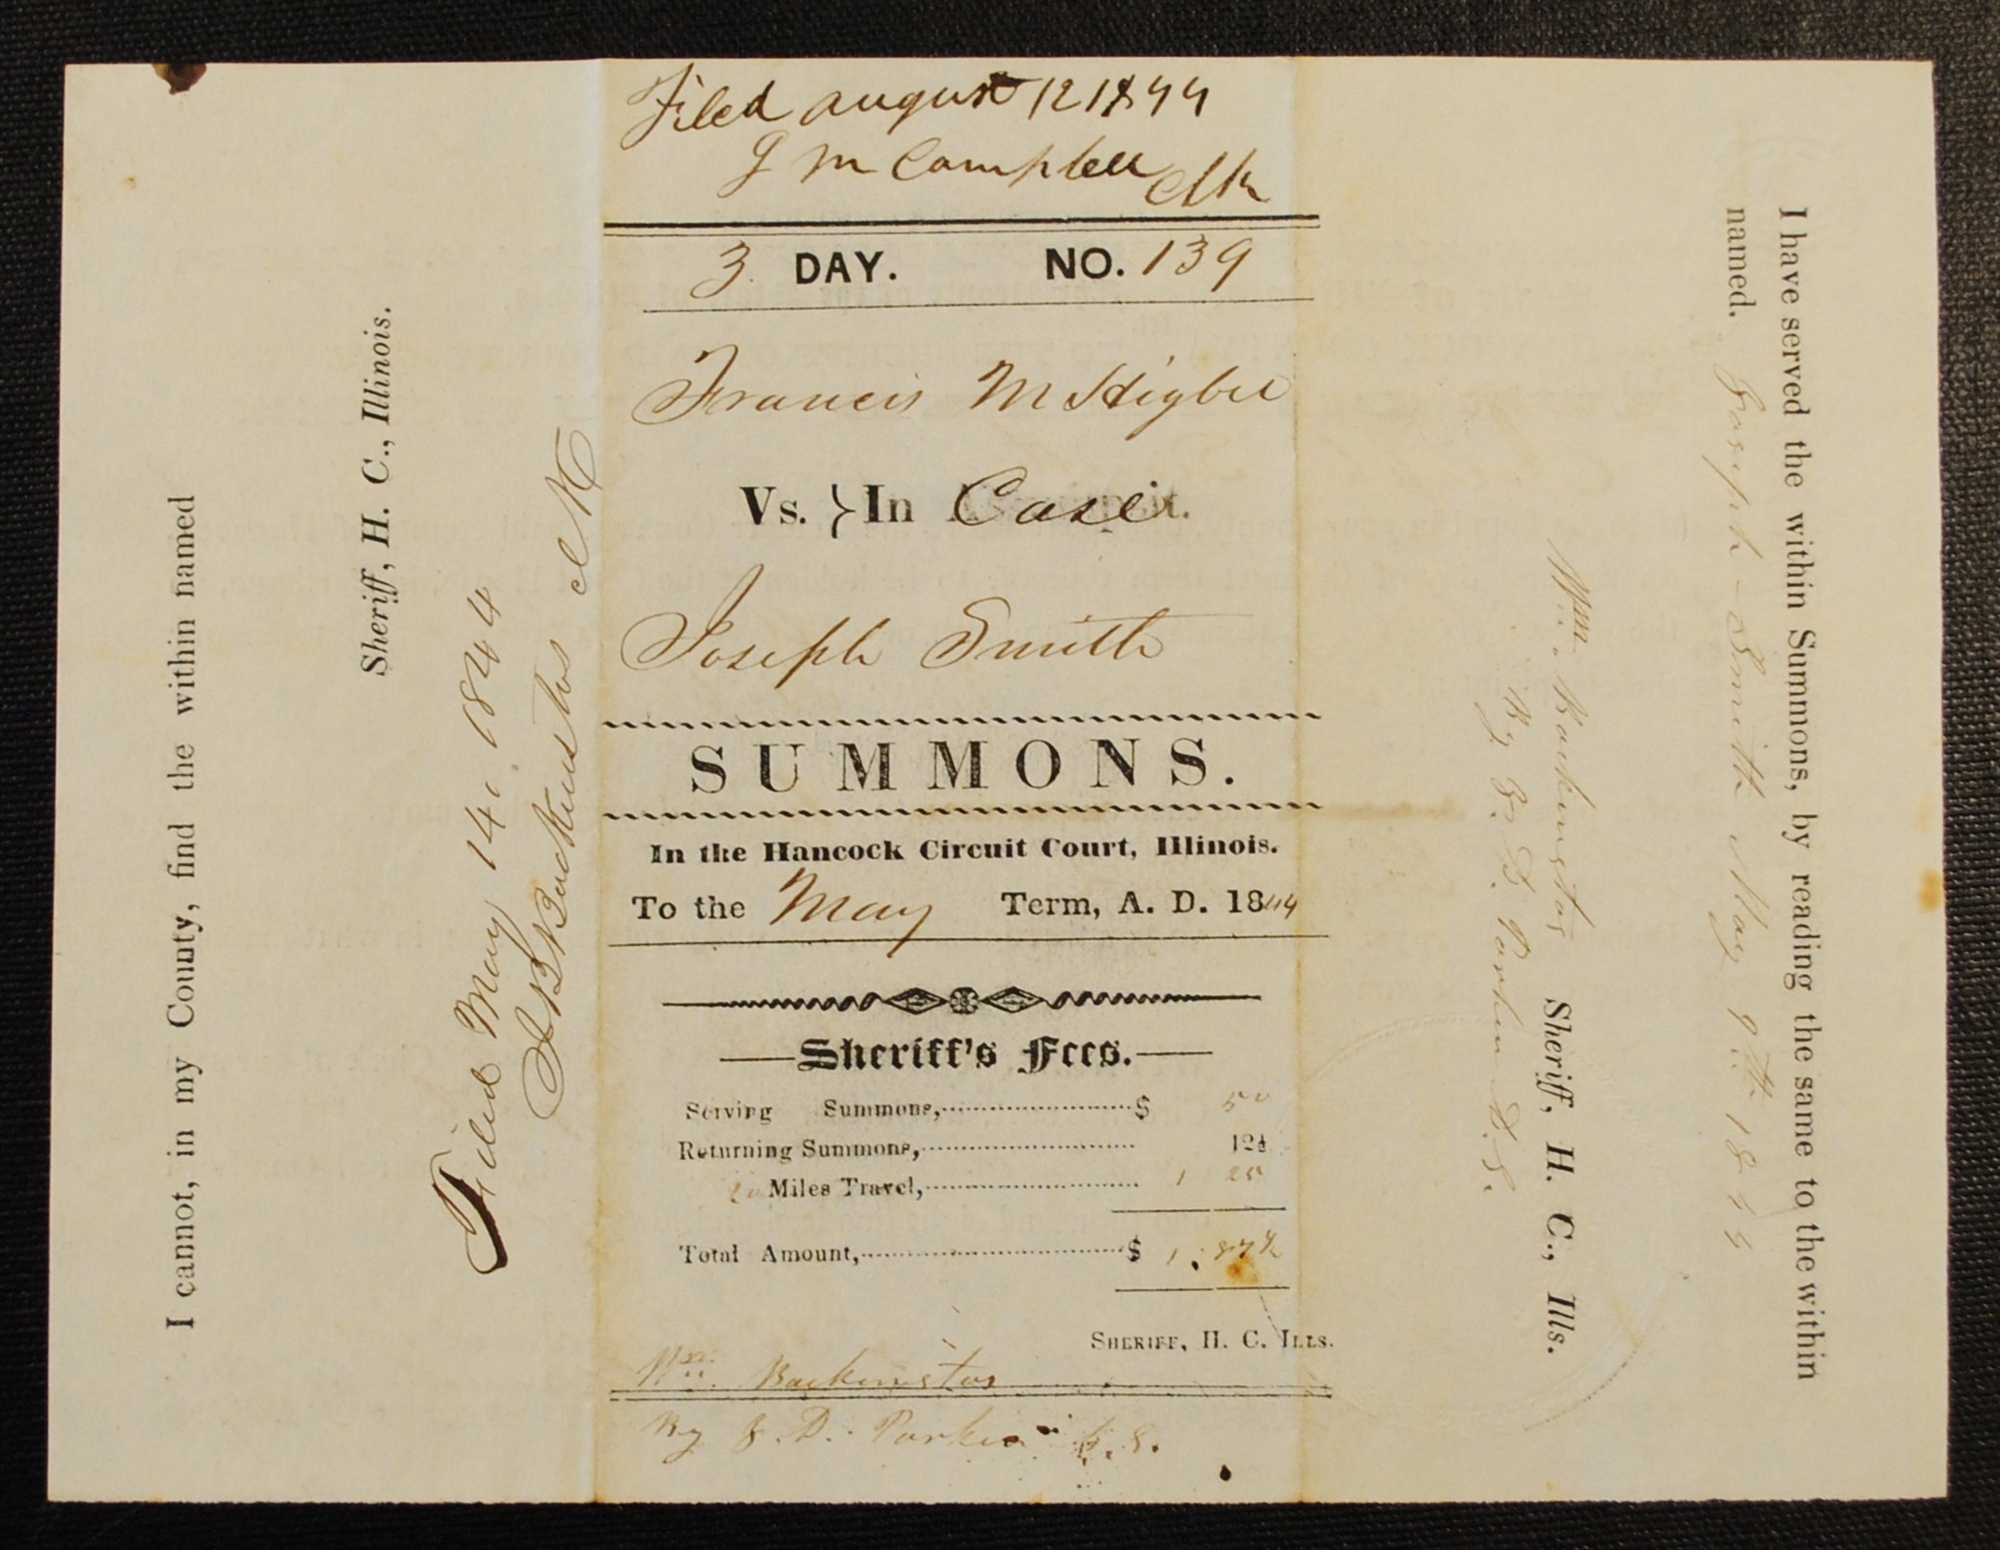 Filed august 12 1844
J M Campbell Clk
3 DAY. NO. 139
Francis M Higbee
Vs. } In Case
Joseph Smith
SUMMONS.
In the Hancock Circuit Court, Illinois.
To the May Term, A. D. 1844
Sheriff's Fees.
Serving Summons, $ 50
Returning Summons, 12½
20 Miles Travel, 1 25
Total Amount, $ 1.87½
SHERIFF, H. C. ILLS.
Wm. Backenstos
By J. D. Parker D. S.
I cannot, in my County, find the within named
Sheriff, H. C., Illinois.
Filed May 14, 1844
Backenstos Clk
I have served the within Summons, by reading the same to the within
named. Joseph Smith May 9th 1844
Wm. Backenstos Sheriff, H. C., Ills.
By J. D. Parker D. S.